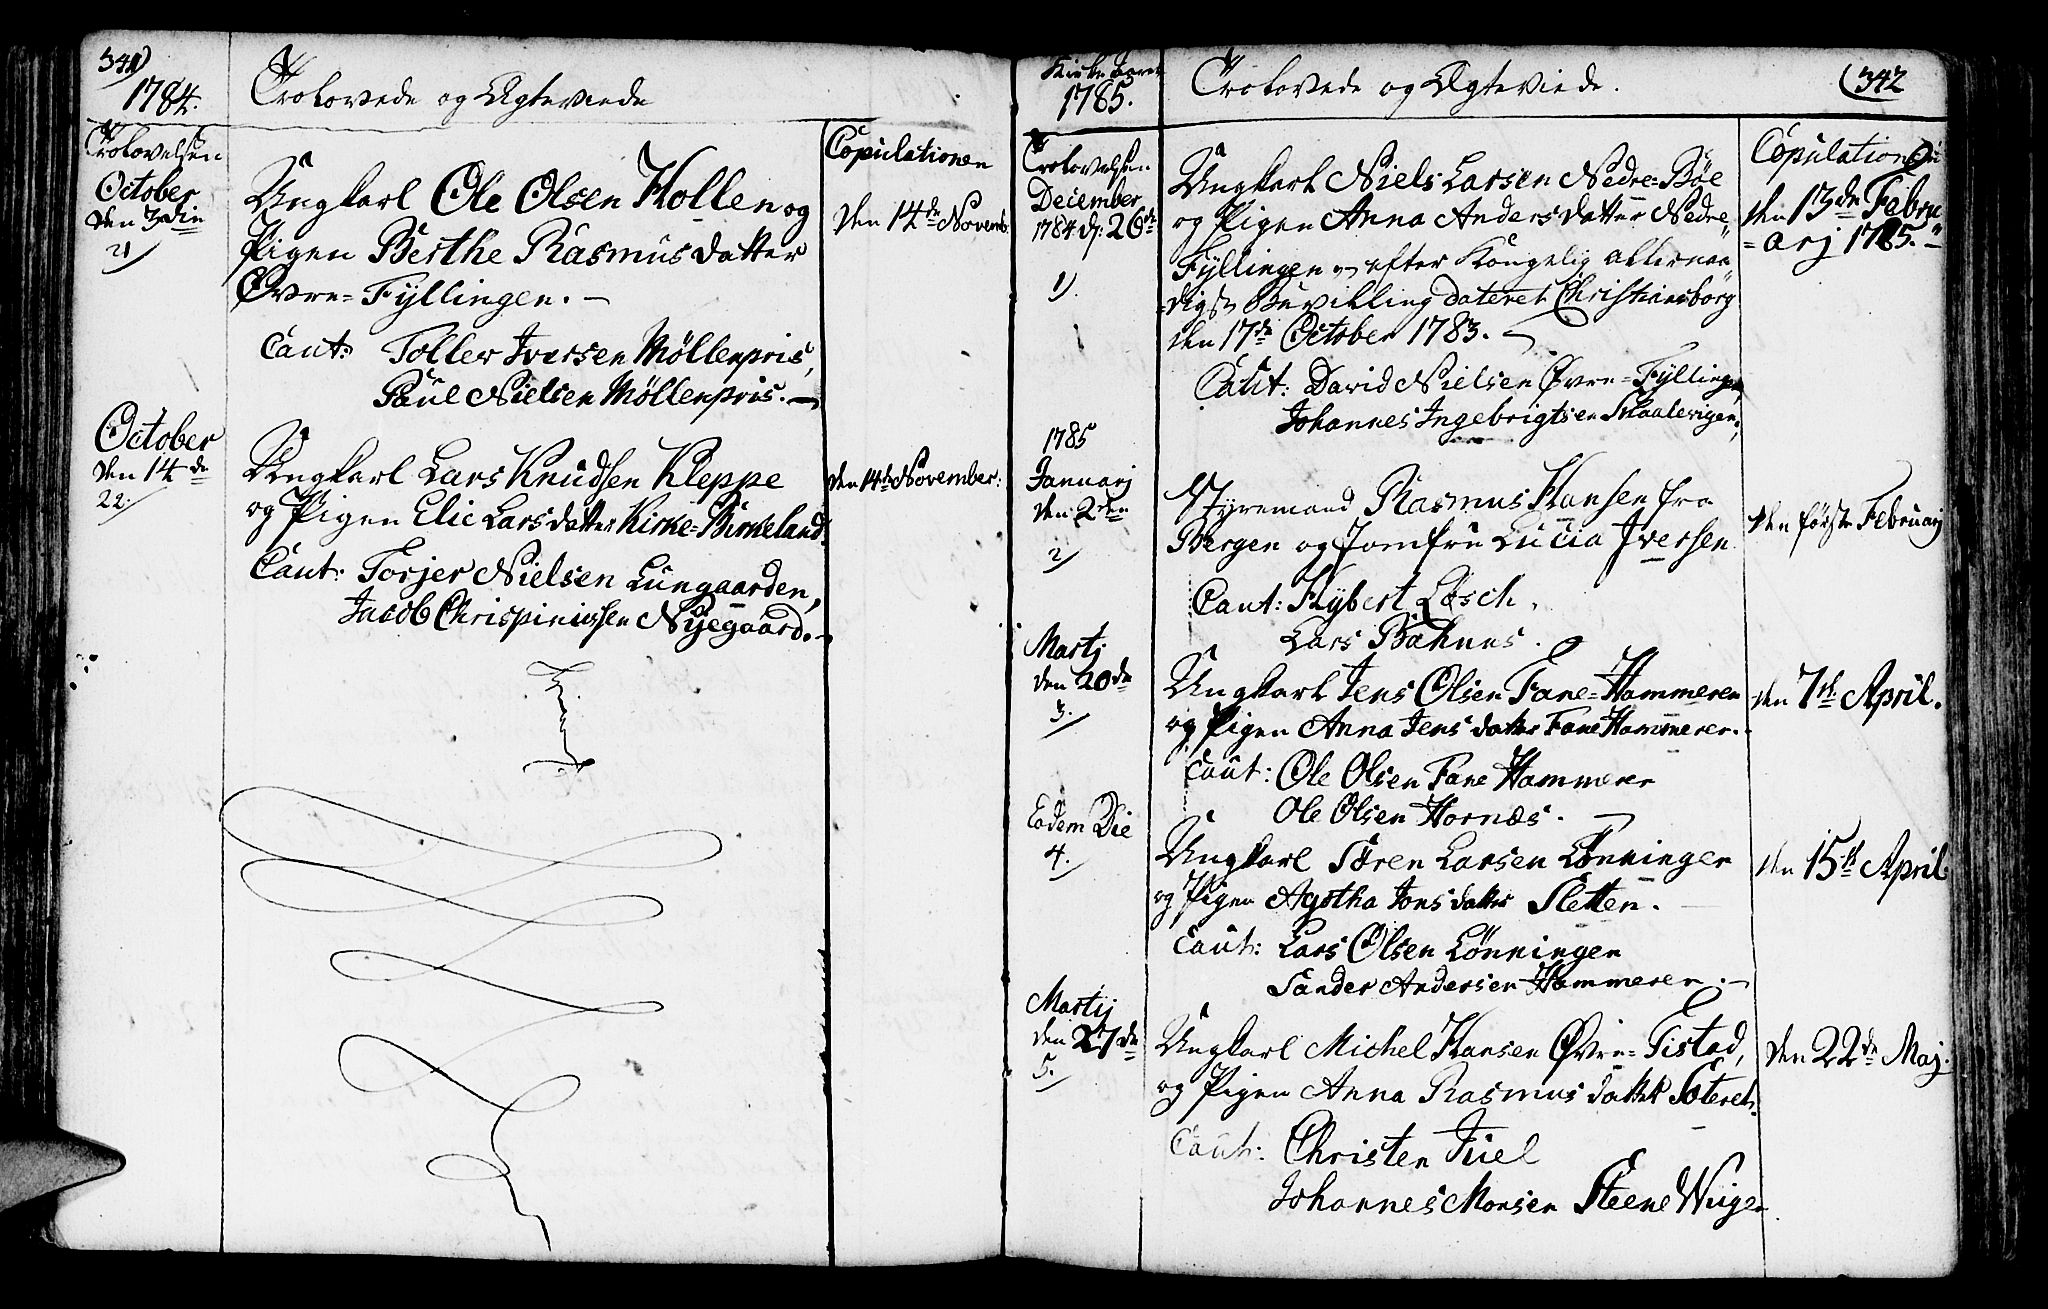 341)
1784.
Trolovede og Ægteviede
Trolovelsen
October
den 3die
21/
Ungkarl Ole Olsen Hollen og
Pigen Berthe Rasmusdatter
Øvre=Fyllingen.
Caut: Toller Iversen Möllenpris,
Paul Nielsen Möllenpris.
Copulationen
den 14de Novemb:
October
den 14de
22./
Ungkarl Lars Knudsen Kleppe
og Pigen Elie Larsdatter Kirke=Birkeland.
Caut: Torjer Nielsen Lungaarden,
Jacob Chrispinissen Nyegaard.
den 14de November:
Kirke Aaret
1785.
Trolovede og Ægteviede.
(342
Trolovelsen
December
1784 d: 26de
1/.
Ungkarl Niels Larsen Nedre=Böe
og Pigen Anna Andersdatter Nedre
Fyllingen efter Kongelig allernaa
=digst Bevilling dateret Christiansborg
den 17de October 1783.
Caut: David Nielsen Øvre=Fyllingen,
Johannes Ingebrigtsen Skaalevigen.
Copulationen
den 13de Febru
=arj 1785.
1785
Januarj
den 2den
2/
Styrmand Rasmus Hansen fra
Bergen og Jomfru Lucia Iversen
Caut: Hybert Lösch,
Lars Bahuus.
den förste Februarj
Martj
den 20de
3./
Ungkarl Jens Olsen Fane=Hammeren
og Pigen Anna Jensdatter Fane Hammeren.
Caut: Ole Olsen Fane Hammeren
Ole Olsen Hornæs.
den 7de April.
Eodem Die
4./
Ungkarl Sören Larsen Lönningen
og Pigen Agotha Jonsdatter Sletten.
Caut: Lars Olsen Lönningen
Sander Andersen Hammeren.
den 15de April
Martij
den 27de
5./
Ungkarl Michel Hansen Øvre=Tistad,
og Pigen Anna Rasmusdatter Sæteret.
Caut: Christen Juel
Johannes Monsen Steene Wiigen.
den 22de Maj.